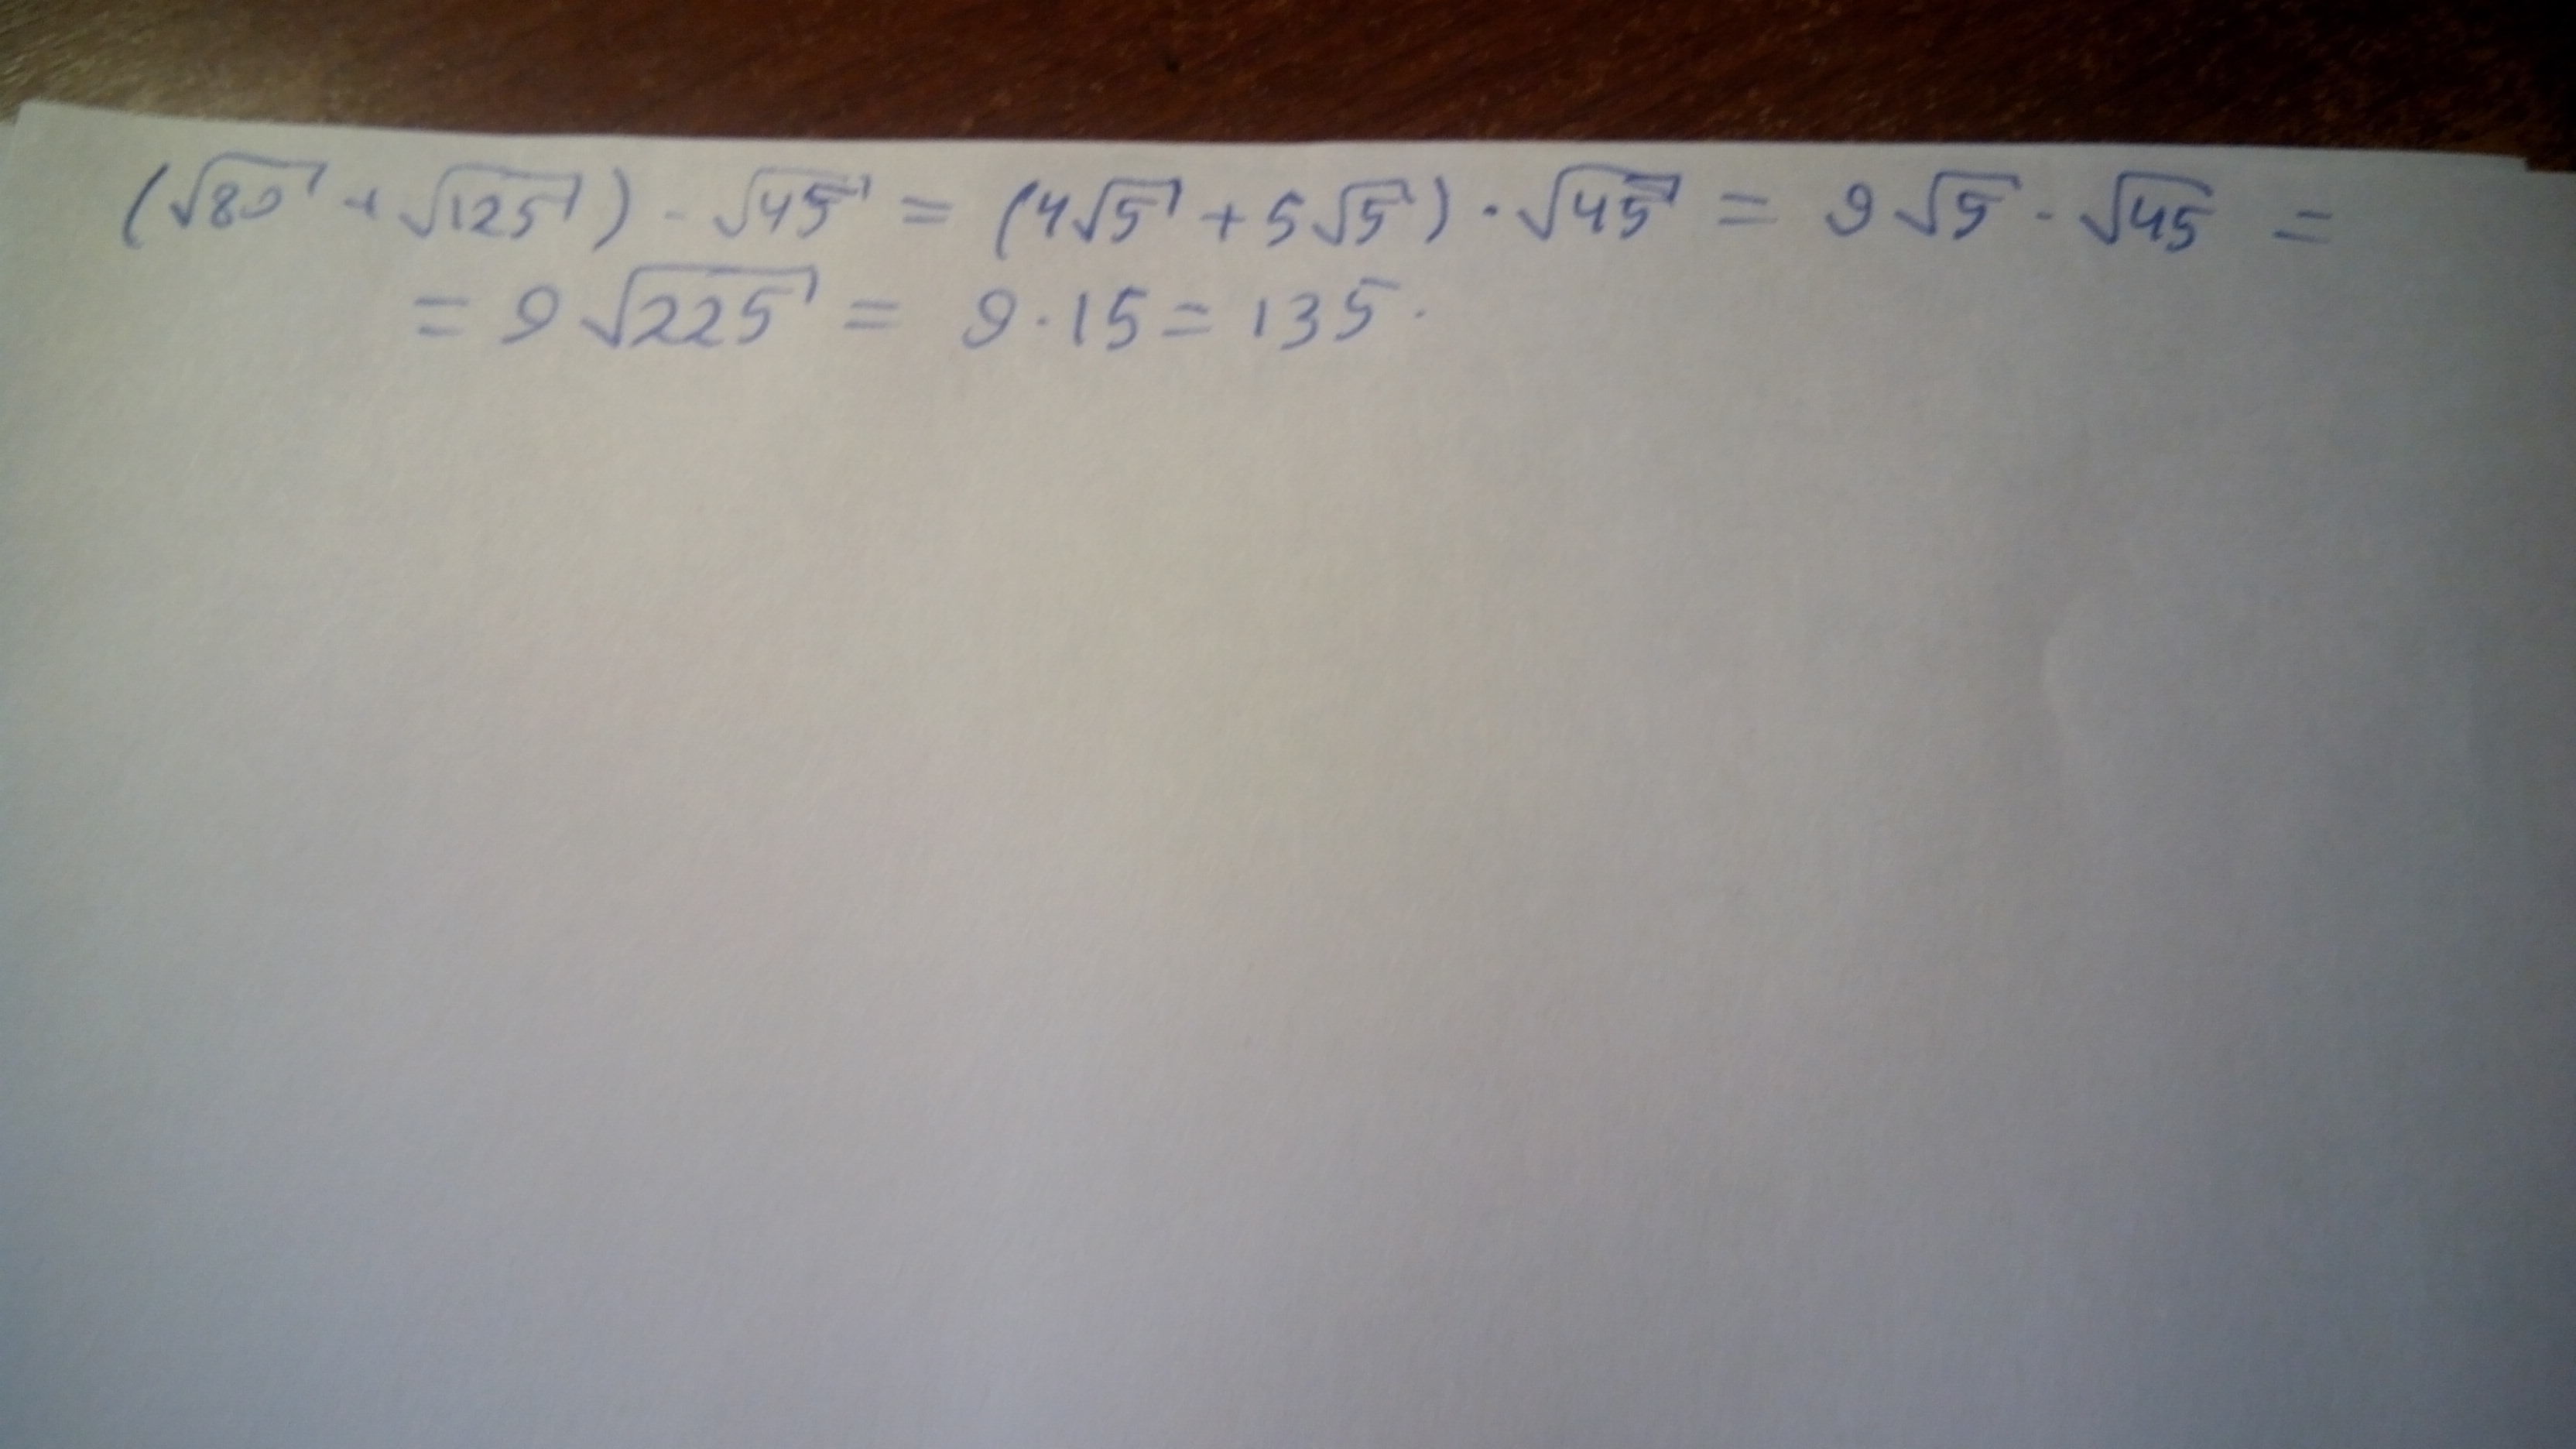 (√80 + √125) · √45 = (4√5 + 5√5) · √45 = 9√5 · √45 =
= 9√225 = 9 · 15 = 135.